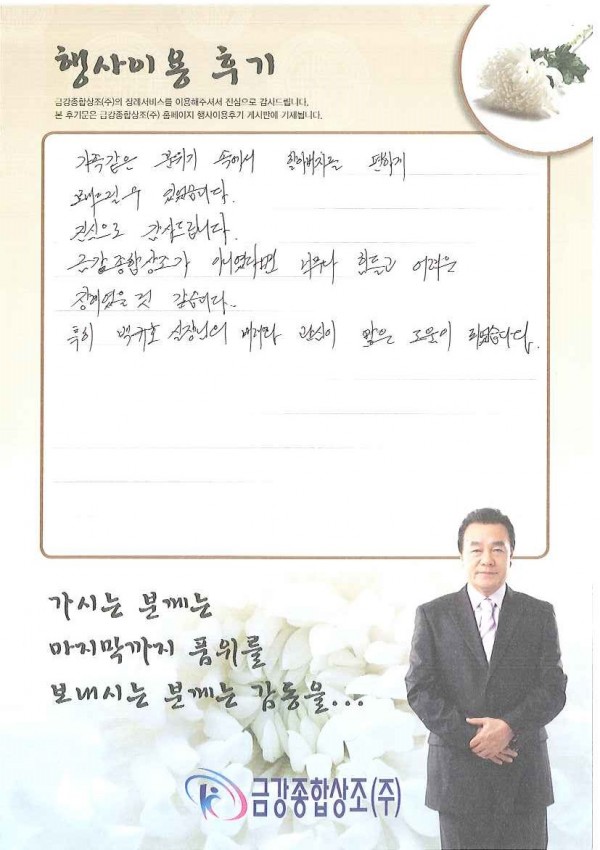 행사이용 후기
금강종합상조(주)의 장례서비스를 이용해주셔서 진심으로 감사드립니다.
본 후기문은 금강종합상조(주) 홈페이지 행사이용후기 게시판에 기재됩니다.
가족같은 분위기 속에서 할아버지를 편하게
보내드릴수 있었습니다.
진심으로 감사드립니다.
금강종합상조가 아니였다면 너무나 힘들고 어려운
장례였을것 같습니다.
특히 백규호 실장님의 배려와 관심이 많은 도움이 되었습니다.
가시는 분께는
마지막까지 품위를
보내시는 분께는 감동을...
금강종합상조(주)